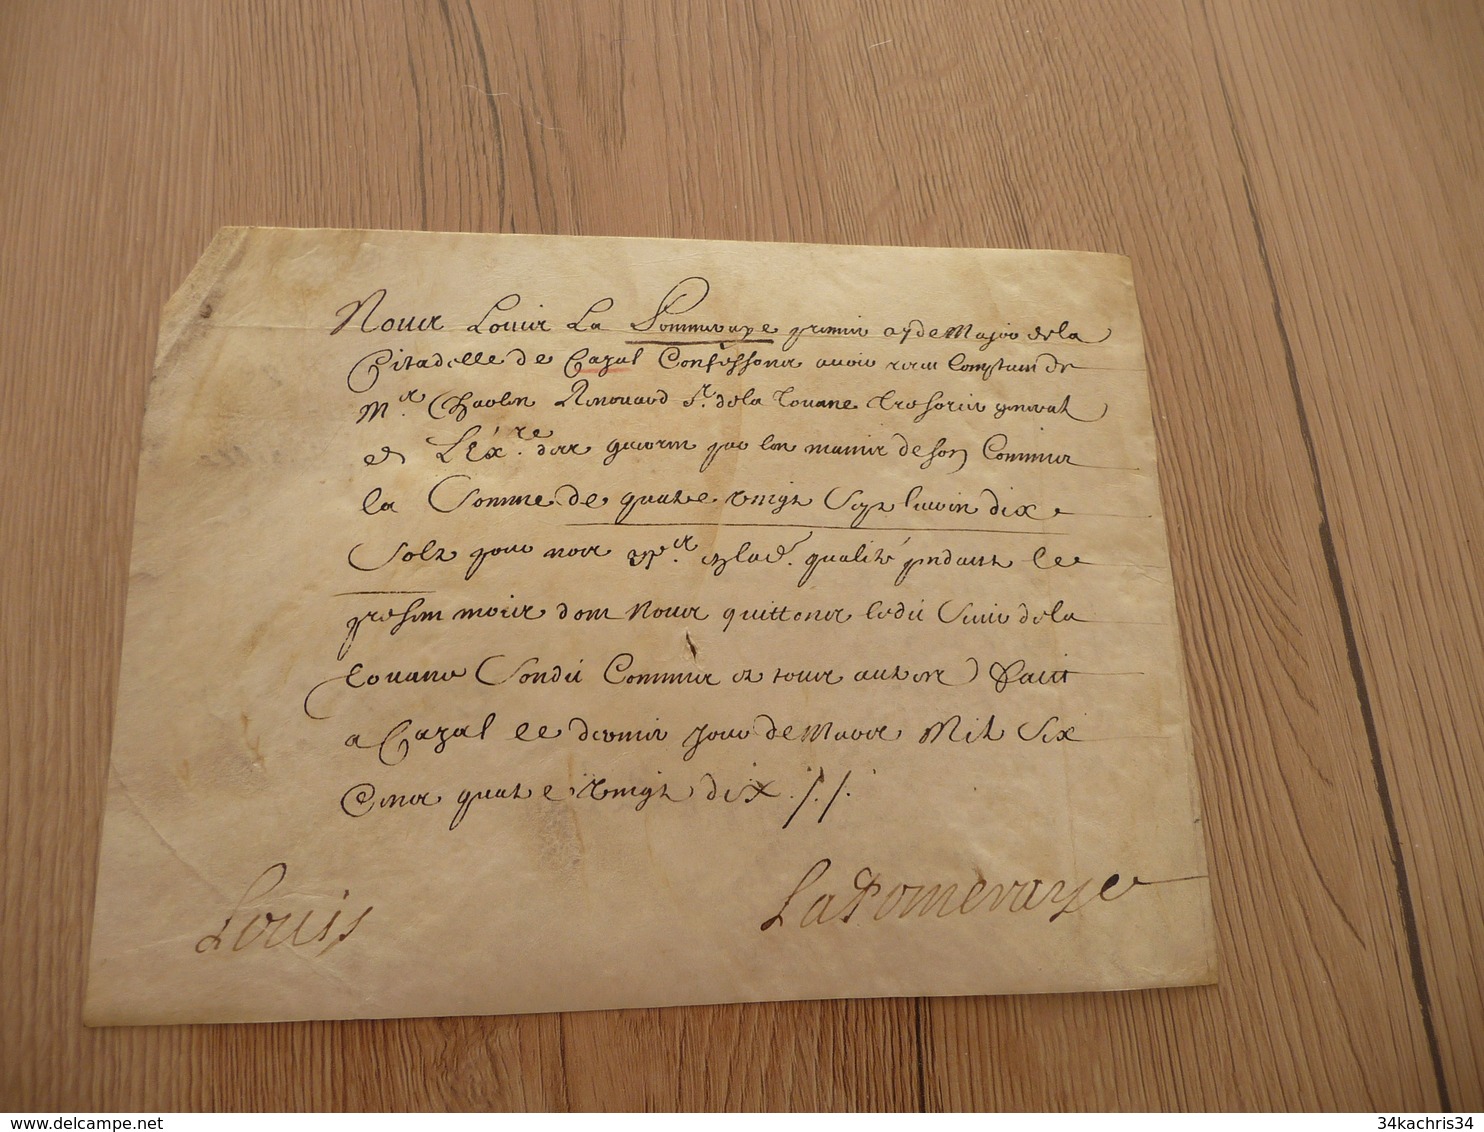 Nous Louis La Pommeraye premier ayde Major de la
Citadelle de Cazal Confessons avoir receu Comptant de
Mre. Charles Renouard Sr. de la Touane Tresorier general
de L'Exre. des guerres par les mains de son Commis
la Somme de quatre vingt Sept livres dix
Solz pour nos apr. en lad. qualité pendant le
present mois dont Nous quittons ledit Sieur de la
Touane Sondit Commis et tous autres Faict
a Cazal le dernier jour de Mars Mil Six
Cens quatre vingt dix ././.
Louis LaPomeraye
34kachris34